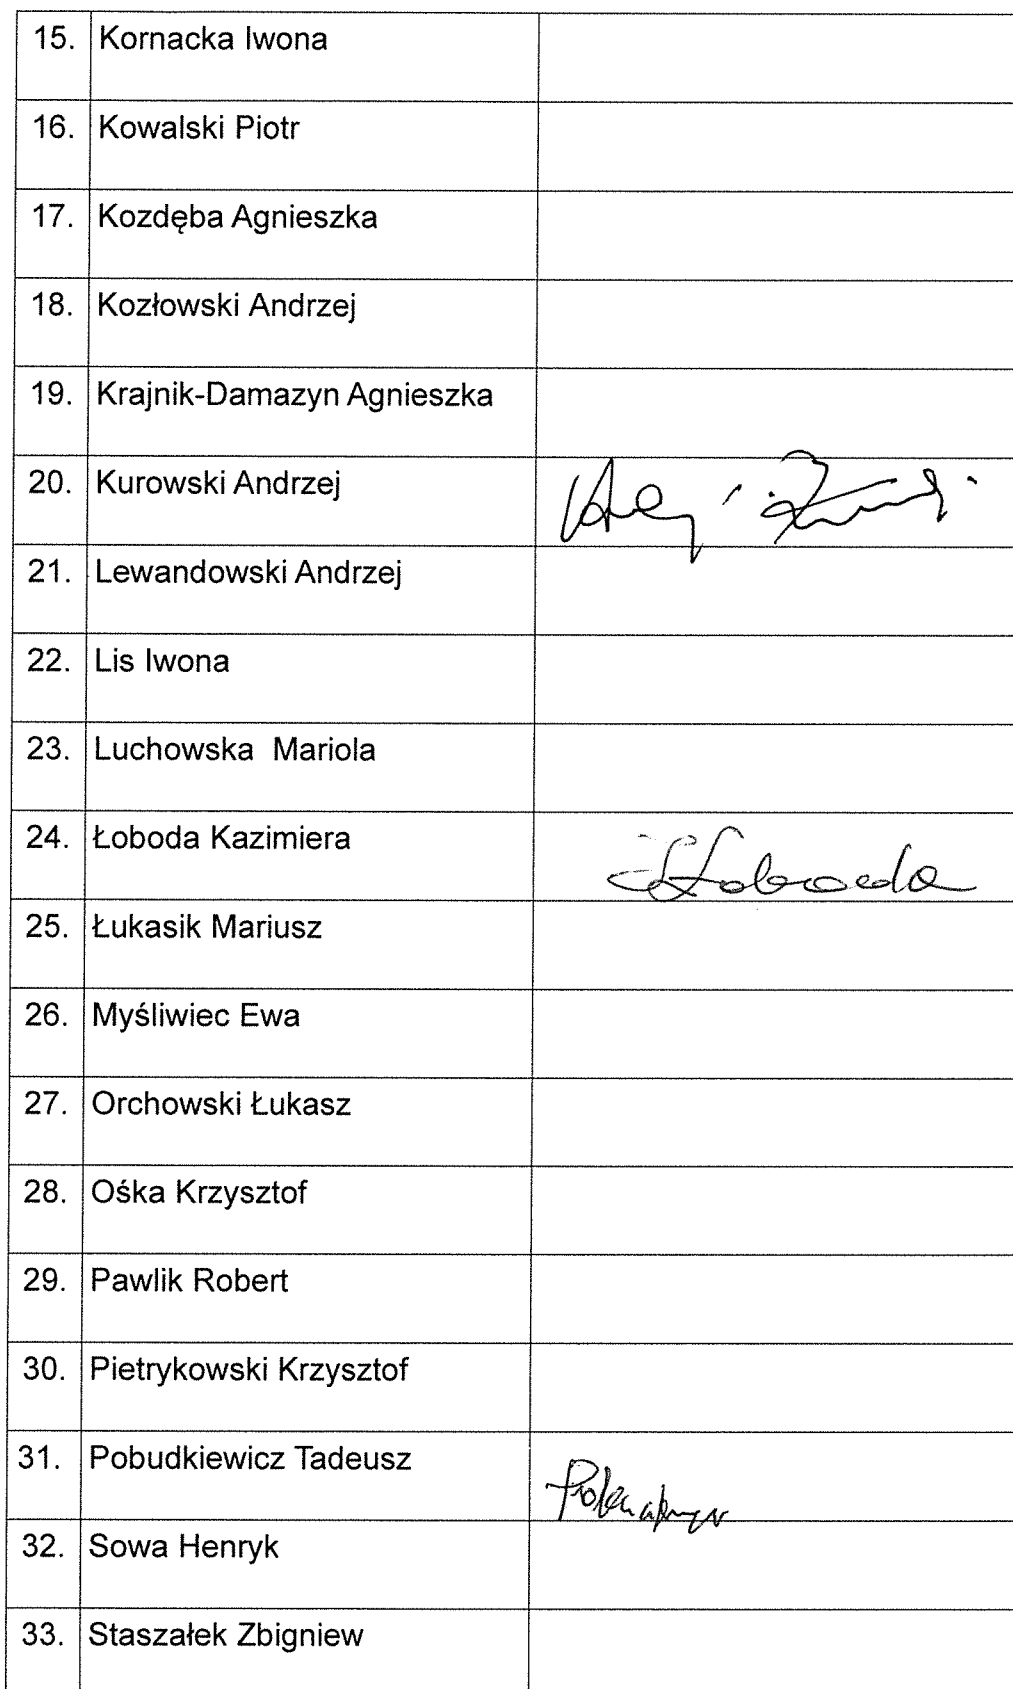 15. Kornacka Iwona
16. Kowalski Piotr
17. Kozdęba Agnieszka
18. Kozłowski Andrzej
19. Krajnik-Damazyn Agnieszka
20. Kurowski Andrzej
21. Lewandowski Andrzej
22. Lis Iwona
23. Luchowska Mariola
24. Łoboda Kazimiera Łoboda
25. Łukasik Mariusz
26. Myśliwiec Ewa
27. Orchowski Łukasz
28. Ośka Krzysztof
29. Pawlik Robert
30. Pietrykowski Krzysztof
31. Pobudkiewicz Tadeusz
32. Sowa Henryk
33. Staszałek Zbigniew